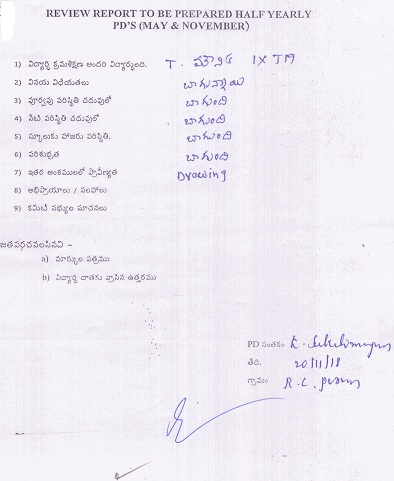 REVIEW REPORT TO BE PREPARED HALF YEARLY
PD'S (MAY & NOVEMBER)
1) విద్యార్థి క్రమశిక్షణ అందరి విద్యార్థులది. T. మౌనిక IX TM
2) వినయ విధేయతలు బాగున్నాయి
3) పూర్వపు పరిస్థితి చదువులో బాగుంది
4) నేటి పరిస్థితి చదువులో బాగుంది
5) స్కూలుకు హాజరు పరిస్థితి. బాగుంది
6) పరిశుభ్రత బాగుంది
7) ఇతర అంశములలో ప్రావీణ్యత Drawing
8) అభిప్రాయాలు / సలహాలు
9) కమిటీ సభ్యుల సూచనలు
జతపర్చవలసినవి –
a) మార్కుల పత్రము
b) విద్యార్థి దాతకు వ్రాసిన ఉత్తరము
PD సంతకం K.
తేది. 20/11/18
గ్రామం R.C. Puram